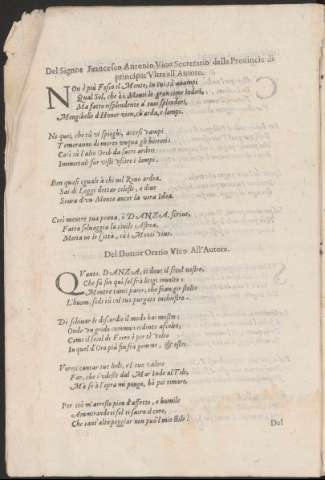 Del Signor Francesco Antonio Vico Secretario della Provincia di
principat' Vltra all'Autore.
NOn è più Fosco il Monte, in cui tù auampi
Qual Sol, che à i Monti le gran cime indori,
Ma fatto risplendente a' tuoi splendori,
Mongibello d'Honor vien, ch'arda, e lampi.
Ne quei, che tù vi spieghi, accesi vampi
Temeranno di morte vnqua gli horrori
Così tù l'alto Ordi da sacri
Immortali fur visti vscire i lampi.
Ben quasi eguale à chi nel Sina ardea,
Sai di Leggi dettar celesti, e diue
Soura d'vn Monte ancor la vera Idea.
Così mentre tua penna, ò DANZA, scriue,
Fatta seluaggia la ciuile Astrea,
Muta in le Città, tù i Monti viue.
Del Dottor Oratio Vico All'Autore.
QVanto, DANZA, ti deue, il secol nostro,
Che sù sei quì sol frà lungi inuolto
Mentre vanti parer, che siam gir sciolto
L'huom, sede tù col tuo purgato inchiostro.
Di schiuar le discordie il modo hai mostro
Onde'n grado commun ciedente ascolto,
Come il secol di Ferro è per te volto
In quel d'Oro più fin frà gemme, & ostro.
Vorrei cantar tue lodi, e'l tuo valore
Far, che s'vdisse dal Mar Indo al Tile,
Mà se è l'opra mi pongo, hò poi timore.
Per ciò m'arresto pien d'affetto, e humile
Ammirando ti sol ti sacro il core,
Che tant'alto poggiar non può'l mio stile?
Del